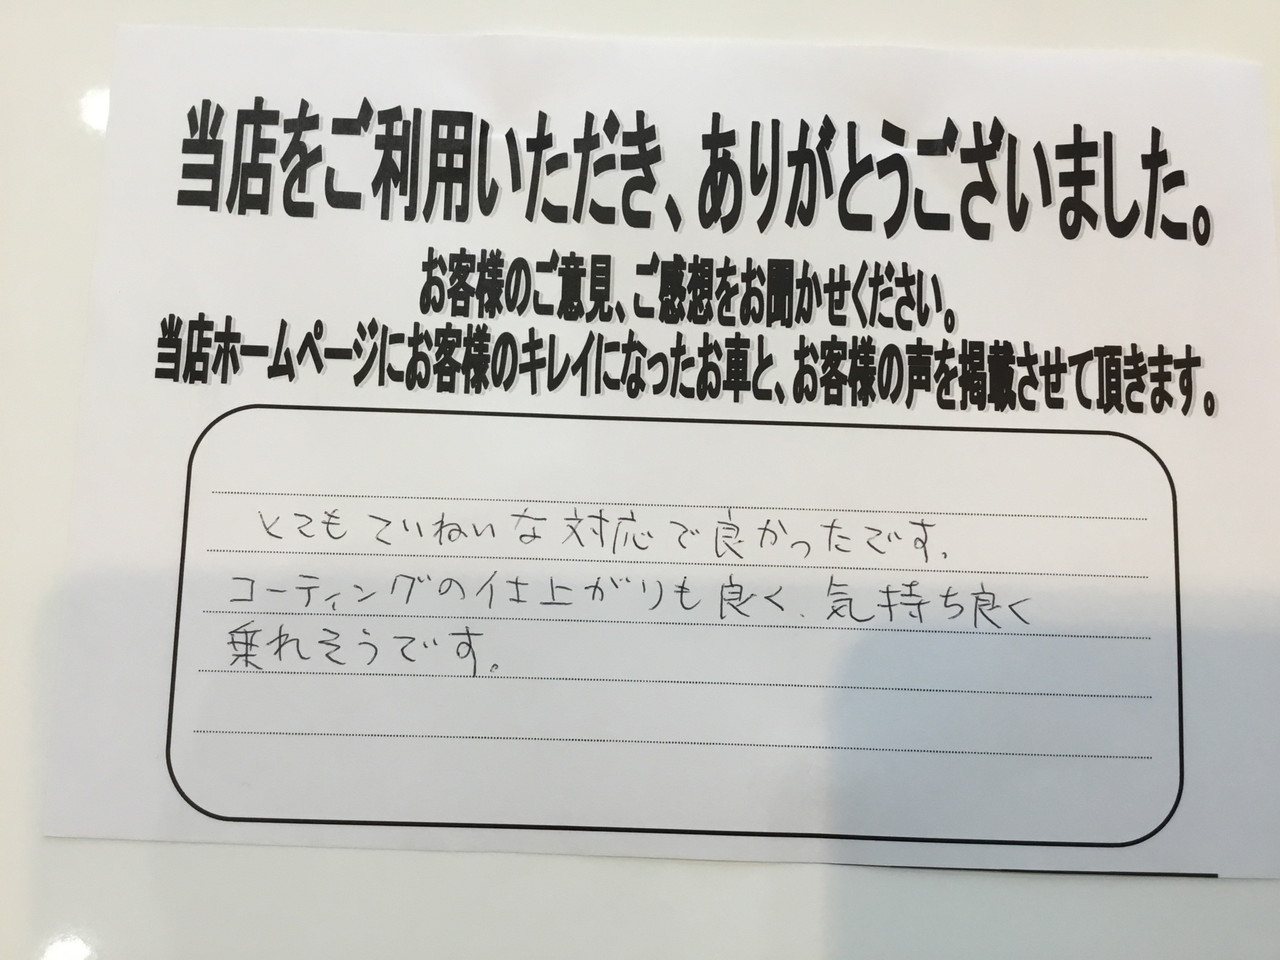 当店をご利用いただき、ありがとうございました。
お客様のご意見、ご感想をお聞かせください。
当店ホームページにお客様のキレイになったお車と、お客様の声を掲載させて頂きます。
とてもていねいな対応で良かったです。
コーティングの仕上がりも良く、気持ち良く
乗れそうです。